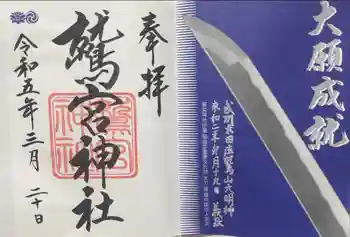 大願成就
武州太田庄鷲山大明神
永和二年卯月十九日 義政
奉拝
鷲宮神社
令和五年三月二十日